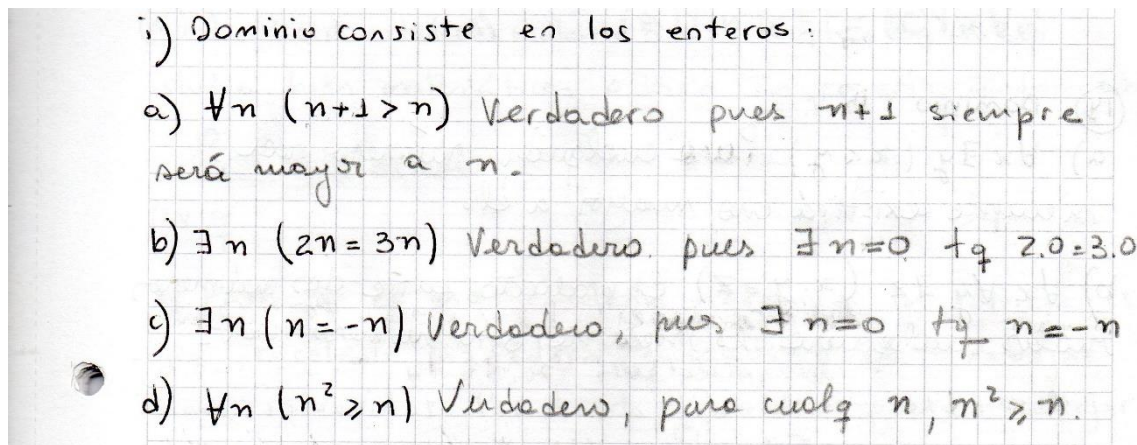 i) Dominio consiste en los enteros:
a) ∀n (n+1>n) Verdadero pues n+1 siempre
será mayor a n.
b) ∃n (2n=3n) Verdadero. pues ∃n=0 tq 2.0=3.0
c) ∃n (n=-n) Verdadero, pues ∃n=0 tq n=-n
d) ∀n (n²≥n) Verdadero, para cualq n, n²≥n.